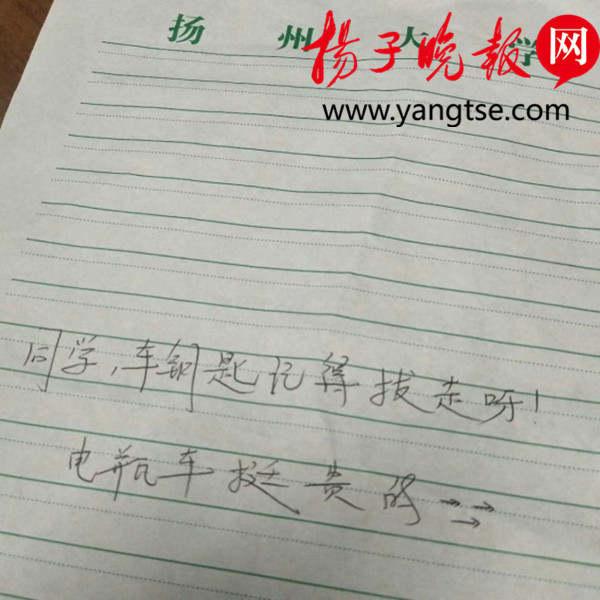 扬州大学
扬子晚报网
www.yangtse.com
同学,车钥匙记得拔走呀!
电瓶车挺贵的→→→